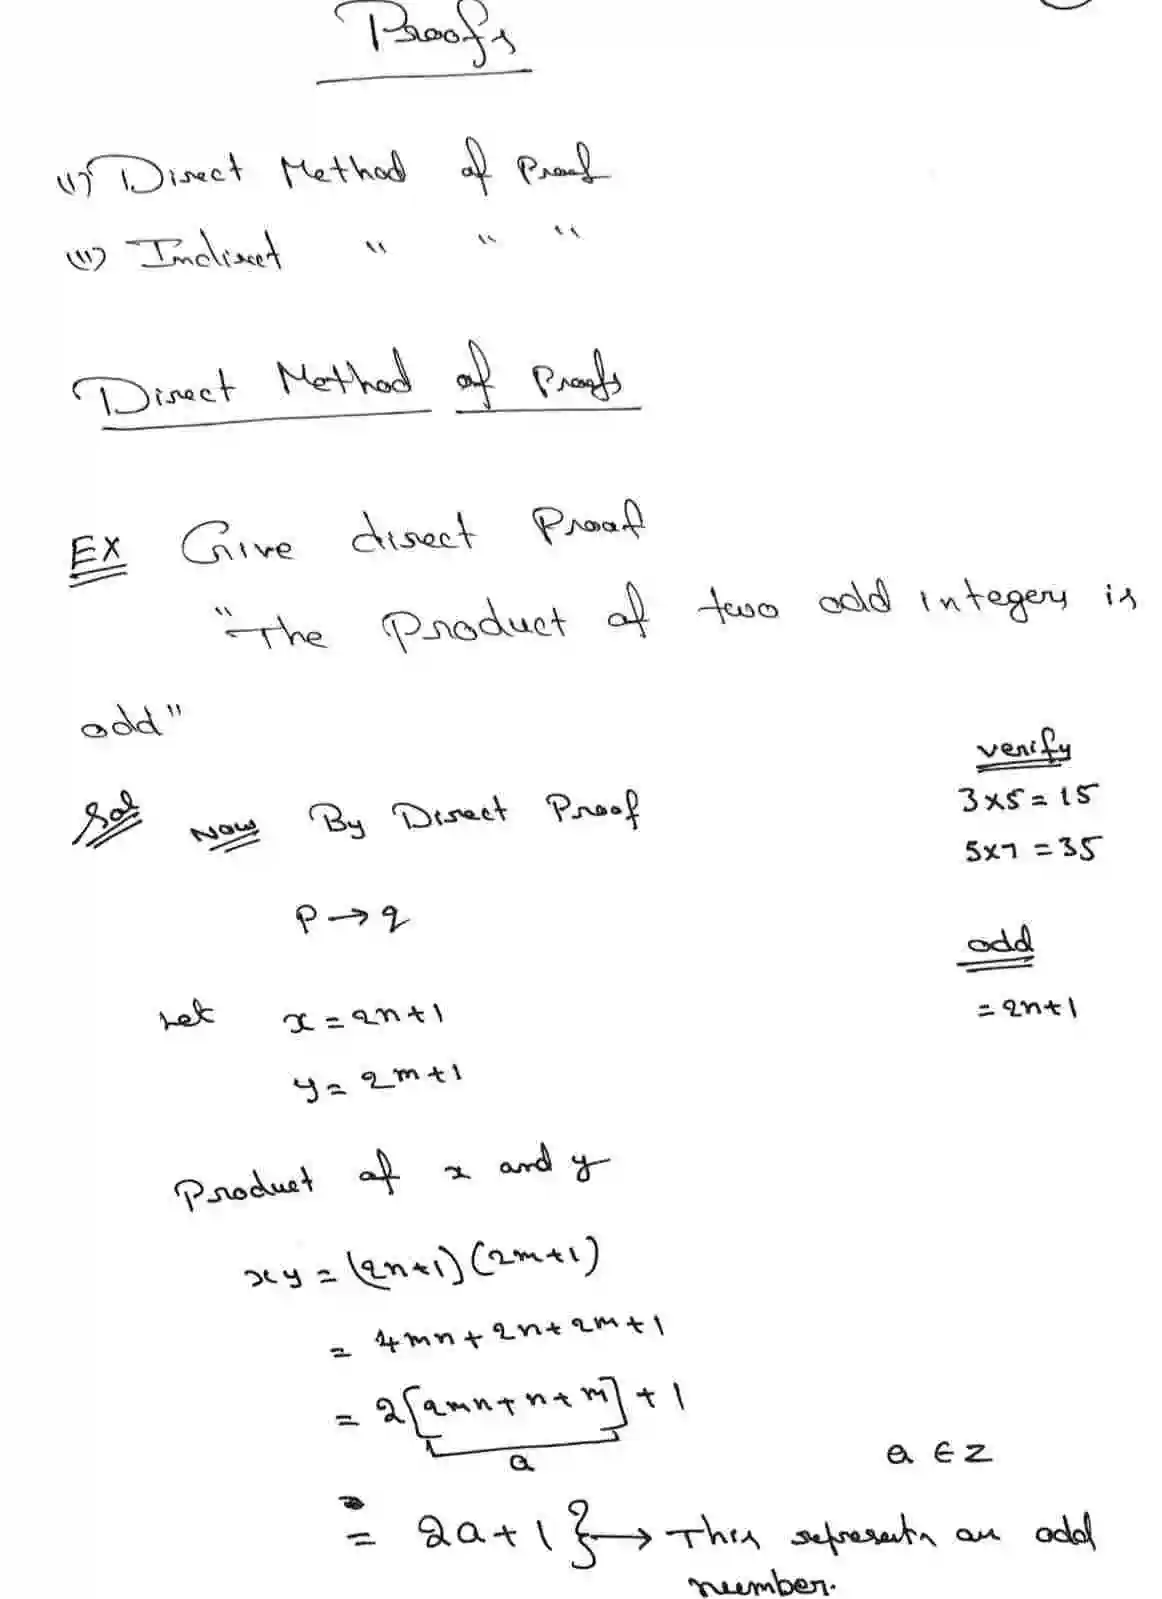 Proofs
(i) Direct Method of Proof
(ii) Indirect " " "
Direct Method of Proofs
EX Give direct Proof
"The Product of two odd integers is
odd"
verify
3×5=15
5×7=35
Sol Now By Direct Proof
P→q
odd
=2n+1
Let x=2n+1
y=2m+1
Product of x and y
xy=(2n+1)(2m+1)
= 4mn+2n+2m+1
= 2[2mn+n+m]+1
a
a ∈ Z
= 2a+1 }→ This represents an odd
number.